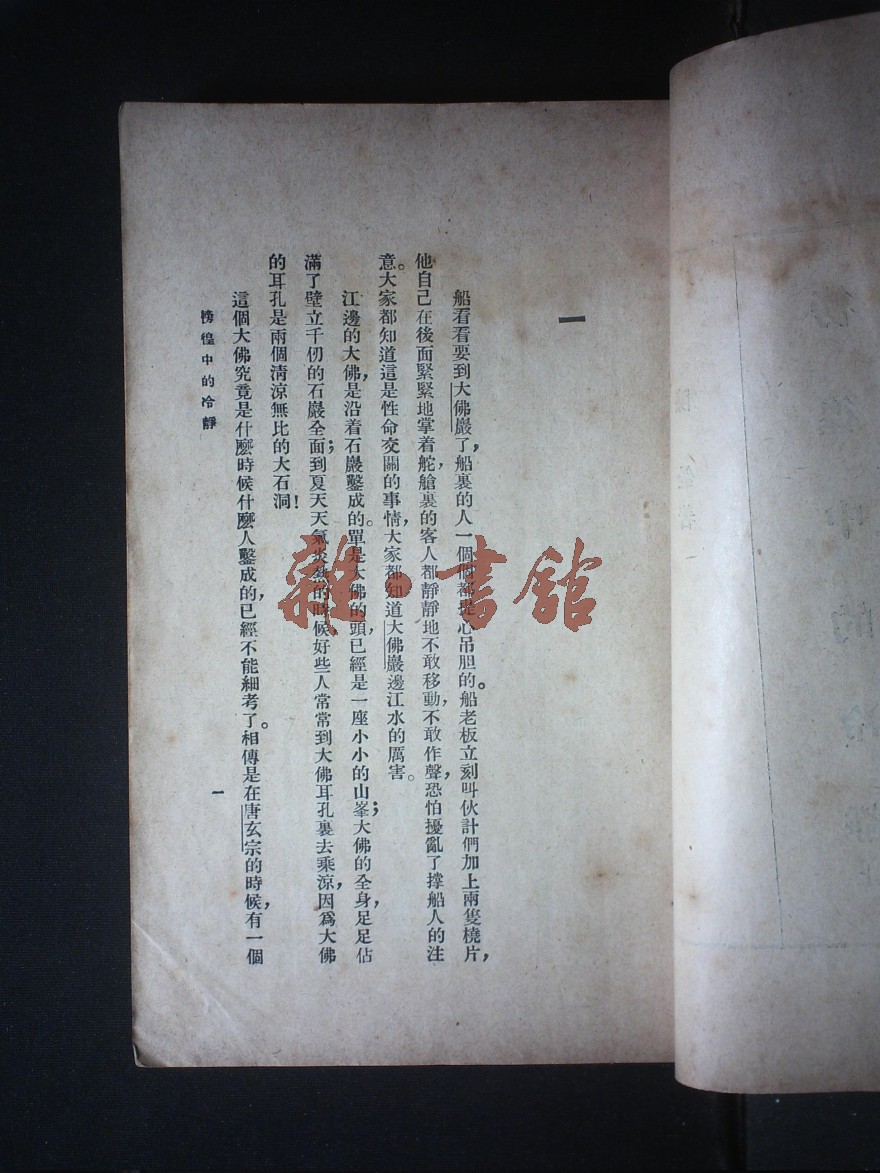 一
船看看要到大佛巖了，船裏的人一個個都提心吊胆的。船老板立刻叫伙計們加上兩隻橈片，
他自己在後面緊緊地掌着舵，艙裏的客人都靜靜地不敢移動，不敢作聲，恐怕擾亂了撑船人的注
意。大家都知道這是性命交關的事情，大家都知道大佛巖邊江水的厲害。
江邊的大佛，是沿着石巖鑿成的。單是大佛的頭，已經是一座小小的山峯；大佛的全身，足足佔
滿了壁立千仞的石巖全面；到夏天天氣炎熱的時候，好些人常常到大佛耳孔裏去乘涼，因爲大佛
的耳孔是兩個清涼無比的大石洞！
這個大佛究竟是什麼時候什麼人鑿成的，已經不能細考了。相傳是在唐玄宗的時候，有一個
徬徨中的冷靜
一
雜·書館